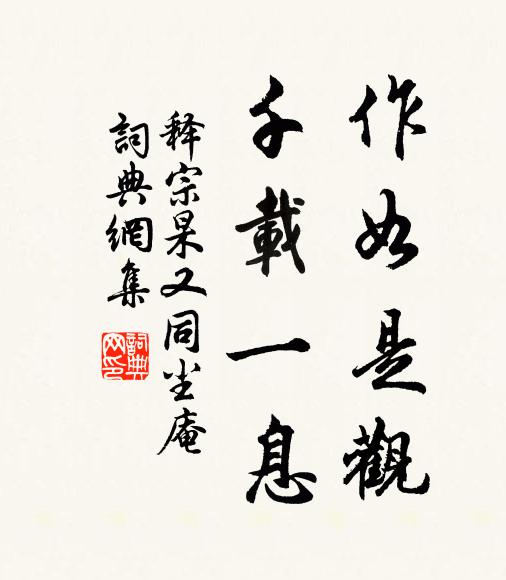 作如是觀
千載一息
释宗杲又同尘庵
詞典網集
詞典
网印